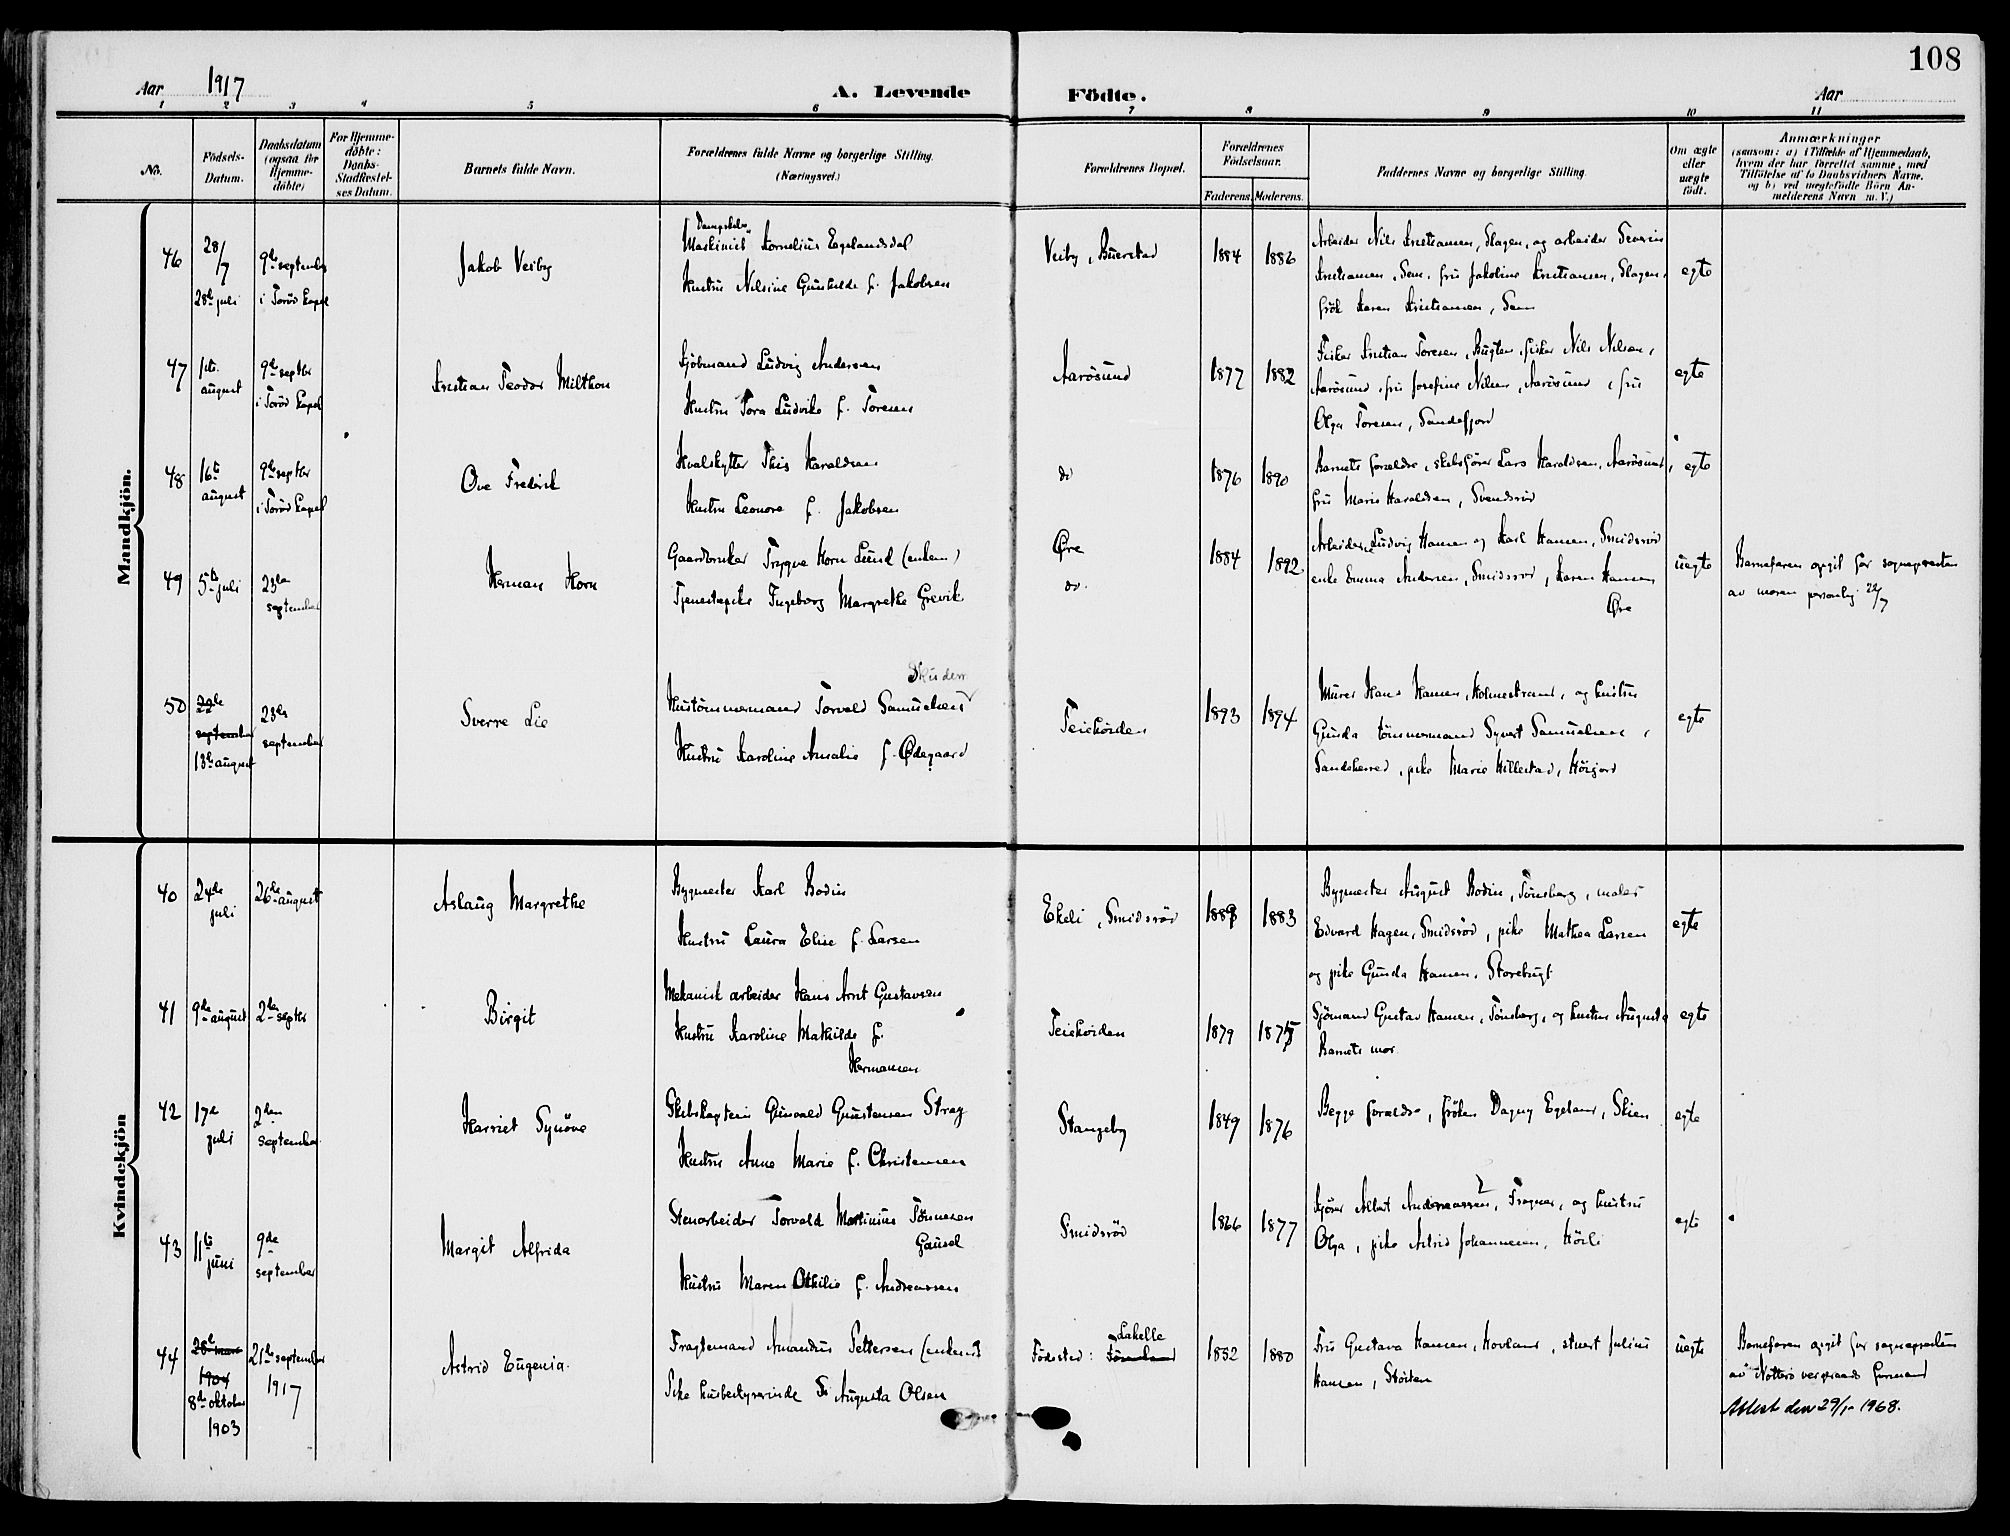 108
Aar 1917
A. Levende Födte.
Aar
1 2 3 4 5 6 7 8 9 10 11
No.
Födsels-Datum.
Daabsdatum (ogsaa for Hjemme-döbte)
For Hjemme-döbte: Daabs-Stadfæstel-ses Datum.
Barnets fulde Navn.
Forældrenes fulde Navne og borgerlige Stilling. (Næringsvei.)
Forældrenes Bopæl.
Forældrenes Födselsaar.
Faderens. Moderens.
Faddernes Navne og borgerlige Stilling.
Om ægte eller uægte födt.
Anmærkninger
(saasom: a) i Tilfælde af Hjemmedaab, hvem der har forrettet samme, med Tilföielse af to Daabsvidners Navne. og b) ved uægtefödte Börn An-melderens Navn m. V.)
Mandkjön.
46
28/7
28de juli
9de september
i Toröd kapel
Jakob Veiby
Maskinist Kornelius Egelandsdal
Hustru Nilsine Gunhilde f. Jakobsen
Veiby, Buerstad
1884 1886
Arbeider Nils Kristiansen, Slagen, og arbeider Severin
Kristiansen, Sem, fru Jakobine Kristiansen, Slagen,
frök Karen Kristiansen, Sem
egte
47
1ste august
9de septbr
i Toröd kapel
Kristian Teodor Milthon
Kjöbmand Ludvig Andersen
Hustru Tora Ludvike f. Toresen
Aarösund
1877 1882
Fisker Kristian Toresen, Bugten, fisker Nils Nilsen,
Aarösund, fru Josefine Nilsen, Aarösund, fru
Olga Toresen, Sandefjord
egte
48
16de august
9de septbr
i Toröd kapel
Ove Fredrik
Hvalskytter This Haraldsen
Hustru Leonore f. Jakobsen
do
1876 1890
Barnets forældre, skibsförer Lars Haraldsen, Aarösund,
fru Marie Haraldsen, Svendsröd
egte
49
5te juli
23de september
Herman Horn
Gaardbruker Trygve Horn Lund (enkem)
Tjenestepike Ingeborg Margrethe Grevik
Øre
do.
1884 1892
Arbeider Ludvig Hansen og Karl Hansen, Smidsröd
enke Emma Andersen, Smidsröd, Karen Hansen
Øre
uegte
Barnefaren opgit for sognepresten
av moren personlig 22/7
50
22de september
13de august
23de september
Sverre Lie
Hustömmermand Torvald Samuelsen
Hustru Karoline Amalie f. Ødegaard
Teiehöiden
1893 1894
Murer Hans Hansen, Holmestrand, og hustru
Gunda tömmermand Syvert Samuelsen,
Sandeherred, pike Marie Hillestad, Höijord
egte
Kvindekjön
40
24de juli
26de august
Aslaug Margrethe
Bygmester Karl Bodin
Hustru Laura Elise f. Larsen
Ekeli, Smidsröd
1883
Bygmester August Bodin, Tönsberg, maler
Edvard Hagen, Smidsröd, pike Mathea Larsen
og pike Gunda Hansen, Storebugt
egte
41
9de august
2de septbr
Birgit
Mekanisk arbeider Hans Arnt Gustavsen
Hustru Karoline Mathilde f.
Hermansen
Teiehöiden
1879
Sjömand Gustav Hansen, Tönsberg, og hustru Augusta
Barnets mor
egte
42
17de juli
2den september
Harriet Synöve
Skibskaptein Gunvald Gunstensen Stray
Hustru Anna Marie f. Christensen
Stangeby
1849 1876
Begge forældre, fröken Dagny Egeland, Skien
egte
43
11te juni
9de september
Margit Alfrida
Stenarbeider Torvald Martinius Tönnesen
Gausel
Hustru Maren Othilie f. Andreassen
Smidsröd
1866 1877
Kjörer Albert Andreassen, Tragner, og hustru
Olga, pike Astrid Johannesen, Hösli
egte
44
28de mars
1904
8de oktober
1903
21de september
1917
Astrid Eugenia
Fragtemand Amandus Pettersen (enkem)
Pike husbestyrerinde Augusta Olsen
Fødested: Lahelle
1882 1880
Fru Gustava Hansen, Hovland, stuert Julius
Hansen, Stöiten
uegte
Barnefaren opgit for sognepresten
av Nötterö vergeraads formand
Attest den 29/1-1968.